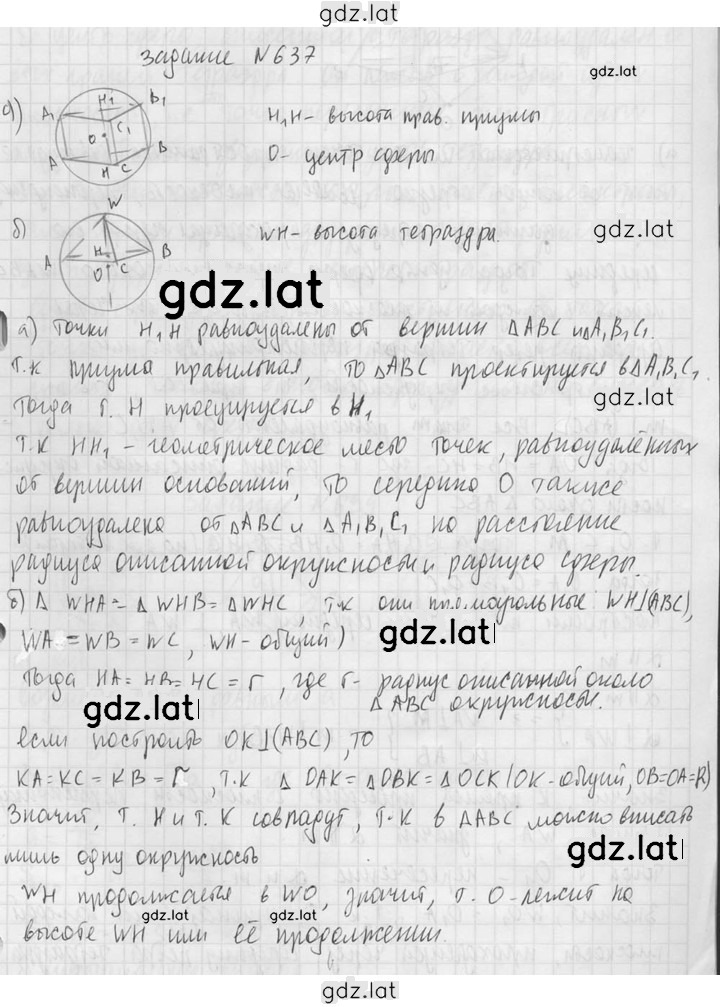 gdz.lat
задание №637
gdz.lat
а) A₁ H₁ B₁ C₁ O A H C B
H₁H - высота прав. призмы
O - центр сферы
б) W A H O C B
WH - высота тетраэдра.
gdz.lat
gdz.lat
а) точки H₁ H равноудалены от вершин △ABC и △A₁B₁C₁.
т.к призма правильная, то △ABC проектируется в △A₁B₁C₁
Тогда т. H проецируется в H₁
gdz.lat
т.к HH₁ - геометрическое место точек, равноудалённых
от вершин оснований, то середина O также
равноудалена от △ABC и △A₁B₁C₁ на расстояние
радиуса описанной окружности и радиуса сферы.
б) △ WHA = △ WHB = △WHC, т.к они прямоугольные WH⊥(ABC),
WA = WB = WC, WH - общий)
gdz.lat
Тогда HA = HB = HC = r, где r - радиус описанной около
△ABC окружности.
gdz.lat
если построить OK⊥(ABC), то
KA = KC = KB = r, т.к △ OAK = △OBK = △OCK (OK - общий, OB=OA=R)
Значит, т. H и т. K совпадут, т.к в △ABC можно вписать
лишь одну окружность
gdz.lat
WH продолжается в WO, значит, т. O - лежит на
gdz.lat
gdz.lat
высоте WH или её продолжении.
gdz.lat